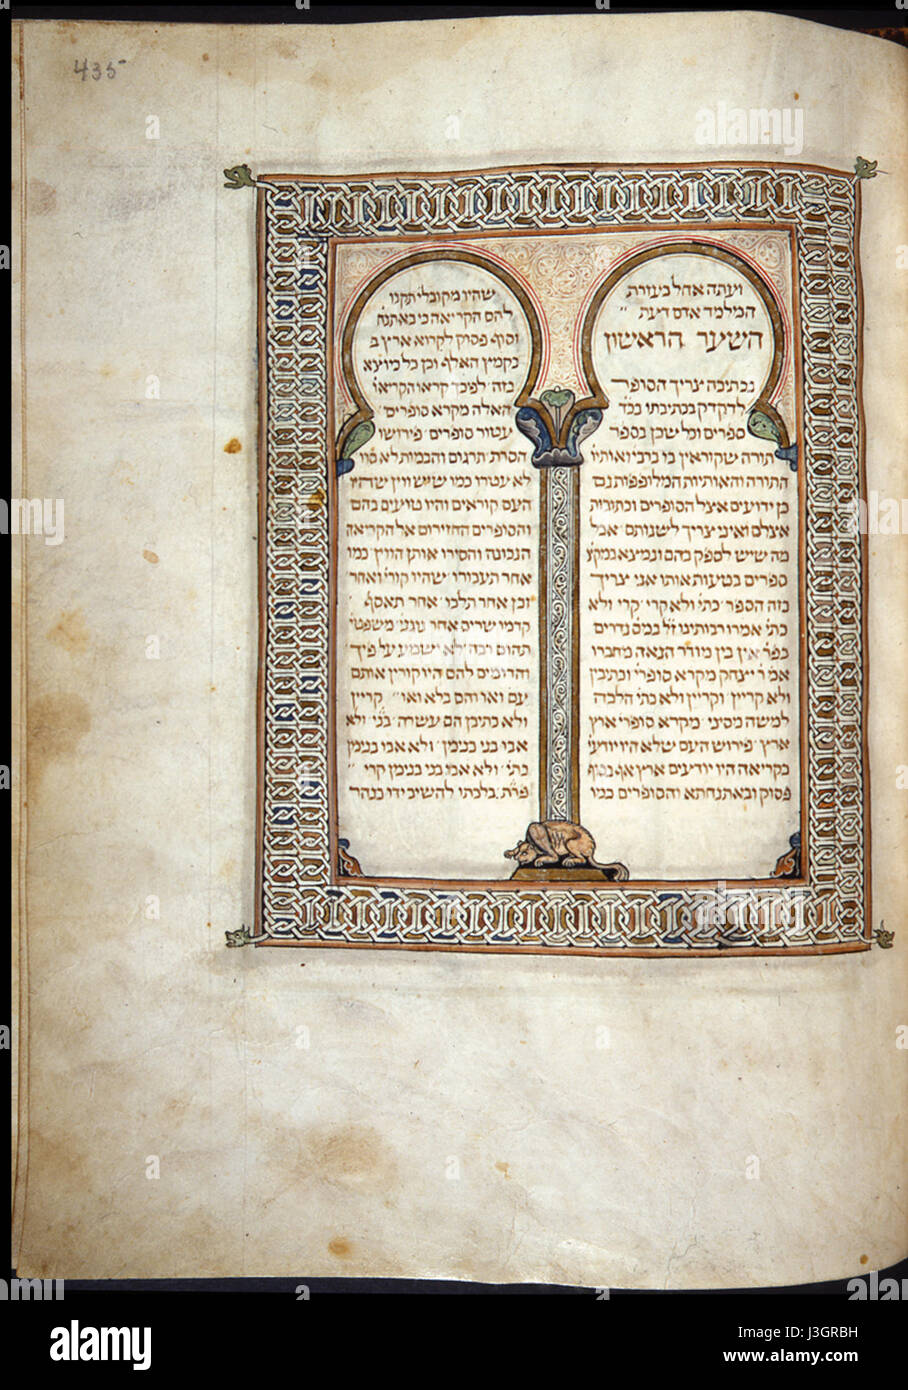 435
ועתה אחל בעזרת
המלמד אדם דעת
השער הראשון
בכתיבה צריך הסופר
לדקדק בכתיבתו ככל
ספרים וכל שכן בספר
תורה שקוראין בו ברבי ואותיו
התורה והאותיות המלופפות גם
כן ידועים אצל הסופרים וכתובות
אצלם ואיני צריך לשנותם אבל
מה שיש לספק בהם ונמצא במקצ
ספרים בטעות אותו אני צריך
בזה הספר כתי ולא קרי קרי ולא
כתי אמרו רבותינו זל במס נדרים
בפר אין בין מודר הנאה מחברו
אמ ר יצחק מקרא סופרי וכתיבן
ולא קריין וקריין ולא כתי הלכה
למשה מסיני מקרא סופרי ארץ
ארץ פירוש העם שלא היו יודעי
בקריאה היו יודעים ארץ אף בסוף
פסוק ובאתנחתא והסופרים כגיו
שהיו מקובלי תקנו
להם הקריאה כי באתנח
וסוף פסוק לקרוא ארץ ב
בקמץ האלף וכן כל כיוצא
בזה לפיכך קראו הקריאו
האלה מקרא סופרים
עטור סופרים פירושו
הסרת תרגום והבמות לא
לא עטרו כמו שיש ווין שהיו
העם קוראים והיו טועים בהם
והסופרים החזירום אל הקריאה
הנכונה והסירו אותן הווין כמו
אחר תעבורו שהיו קורי ואחר
וכן אחר תלכו אחר תאסף
קדמו שרים אחר נוגנ משפטי
תהום רבה לא ישמע על פיך
והדומים להם היו קורין אותם
עם ואו והם בלא ואו קריין
ולא כתיבן הם עשרה בני ולא
אבו בני בנימן ולא אבו בנימן
כתי ולא אבו בני בנימן קרי
פרת בלכתו להשיב ידו בנהר
alamy
Image ID: J3GRBH
www.alamy.com